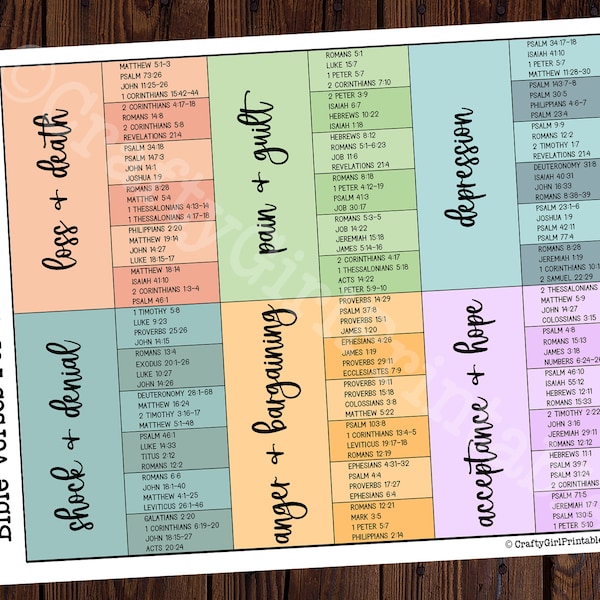 loss + death
MATTHEW 5:1-3
PSALM 73:26
JOHN 11:25-26
1 CORINTHIANS 15:42-44
2 CORINTHIANS 4:17-18
ROMANS 14:8
2 CORINTHIANS 5:8
REVELATIONS 21:4
PSALM 34:18
PSALM 147:3
JOHN 14:1
JOSHUA 1:9
ROMANS 8:28
MATTHEW 5:4
1 THESSALONIANS 4:13-14
1 THESSALONIANS 4:17-18
PHILIPPIANS 2:20
MATTHEW 19:14
JOHN 14:27
LUKE 18:15-17
MATTHEW 18:14
ISAIAH 41:10
2 CORINTHIANS 1:3-4
PSALM 46:1
pain + guilt
ROMANS 5:1
LUKE 15:7
1 PETER 5:7
2 CORINTHIANS 7:10
2 PETER 3:9
ISAIAH 6:7
HEBREWS 10:22
ISAIAH 1:18
HEBREWS 8:12
ROMANS 5:1-6:23
JOB 11:6
REVELATIONS 21:4
ROMANS 8:18
1 PETER 4:12-19
PSALM 41:3
JOB 30:17
ROMANS 5:3-5
JOB 14:22
JEREMIAH 15:18
JAMES 5:14-16
2 CORINTHIANS 4:17
1 THESSALONIANS 5:18
ACTS 14:22
1 PETER 5:9-10
depression
PSALM 34:17-18
ISAIAH 41:10
1 PETER 5:7
MATTHEW 11:28-30
PSALM 143:7-8
PSALM 30:5
PHILIPPIANS 4:6-7
PSALM 23:4
PSALM 9:9
ROMANS 12:2
2 TIMOTHY 1:7
REVELATIONS 21:4
DEUTERONOMY 31:8
ISAIAH 40:31
JOHN 16:33
ROMANS 8:38-39
PSALM 23:1-6
JOSHUA 1:9
PSALM 42:11
PSALM 77:4
ROMANS 8:28
JEREMIAH 1:19
1 CORINTHIANS 10:1
2 SAMUEL 22:29
shock + denial
1 TIMOTHY 5:8
LUKE 9:23
PROVERBS 25:26
JOHN 14:15
ROMANS 13:4
EXODUS 20:1-26
LUKE 10:27
JOHN 14:26
DEUTERONOMY 28:1-68
MATTHEW 16:24
2 TIMOTHY 3:16-17
MATTHEW 5:1-48
PSALM 46:1
LUKE 14:33
TITUS 2:12
ROMANS 12:2
ROMANS 6:6
JOHN 18:1-40
MATTHEW 4:1-25
LEVITICUS 26:1-46
GALATIANS 2:20
1 CORINTHIANS 6:19-20
JOHN 18:15-27
ACTS 20:24
anger + bargaining
PROVERBS 14:29
PSALM 37:8
PROVERBS 15:1
JAMES 1:20
EPHESIANS 4:26
JAMES 1:19
PROVERBS 29:11
ECCLESIASTES 7:9
PROVERBS 19:11
PROVERBS 15:18
COLOSSIANS 3:8
MATTHEW 5:22
PSALM 103:8
1 CORINTHIANS 13:4-5
LEVITICUS 19:17-18
ROMANS 12:19
EPHESIANS 4:31-32
PSALM 4:4
PROVERBS 17:27
EPHESIANS 6:4
ROMANS 12:21
MARK 3:5
1 PETER 5:7
PHILIPPIANS 2:14
acceptance + hope
2 THESSALONIANS
MATTHEW 5:9
JOHN 14:27
COLOSSIANS 3:15
PSALM 4:8
ROMANS 15:13
JAMES 3:18
NUMBERS 6:24-26
PSALM 46:10
ISAIAH 55:12
HEBREWS 12:11
ROMANS 15:33
2 TIMOTHY 2:22
JOHN 3:16
JEREMIAH 29:11
ROMANS 12:12
HEBREWS 11:1
PSALM 39:7
PSALM 31:24
2 CORINTHIANS
PSALM 71:5
JEREMIAH 17:7
PSALM 130:5
1 PETER 5:10
Bible Verses
©CraftyGirlPrintable